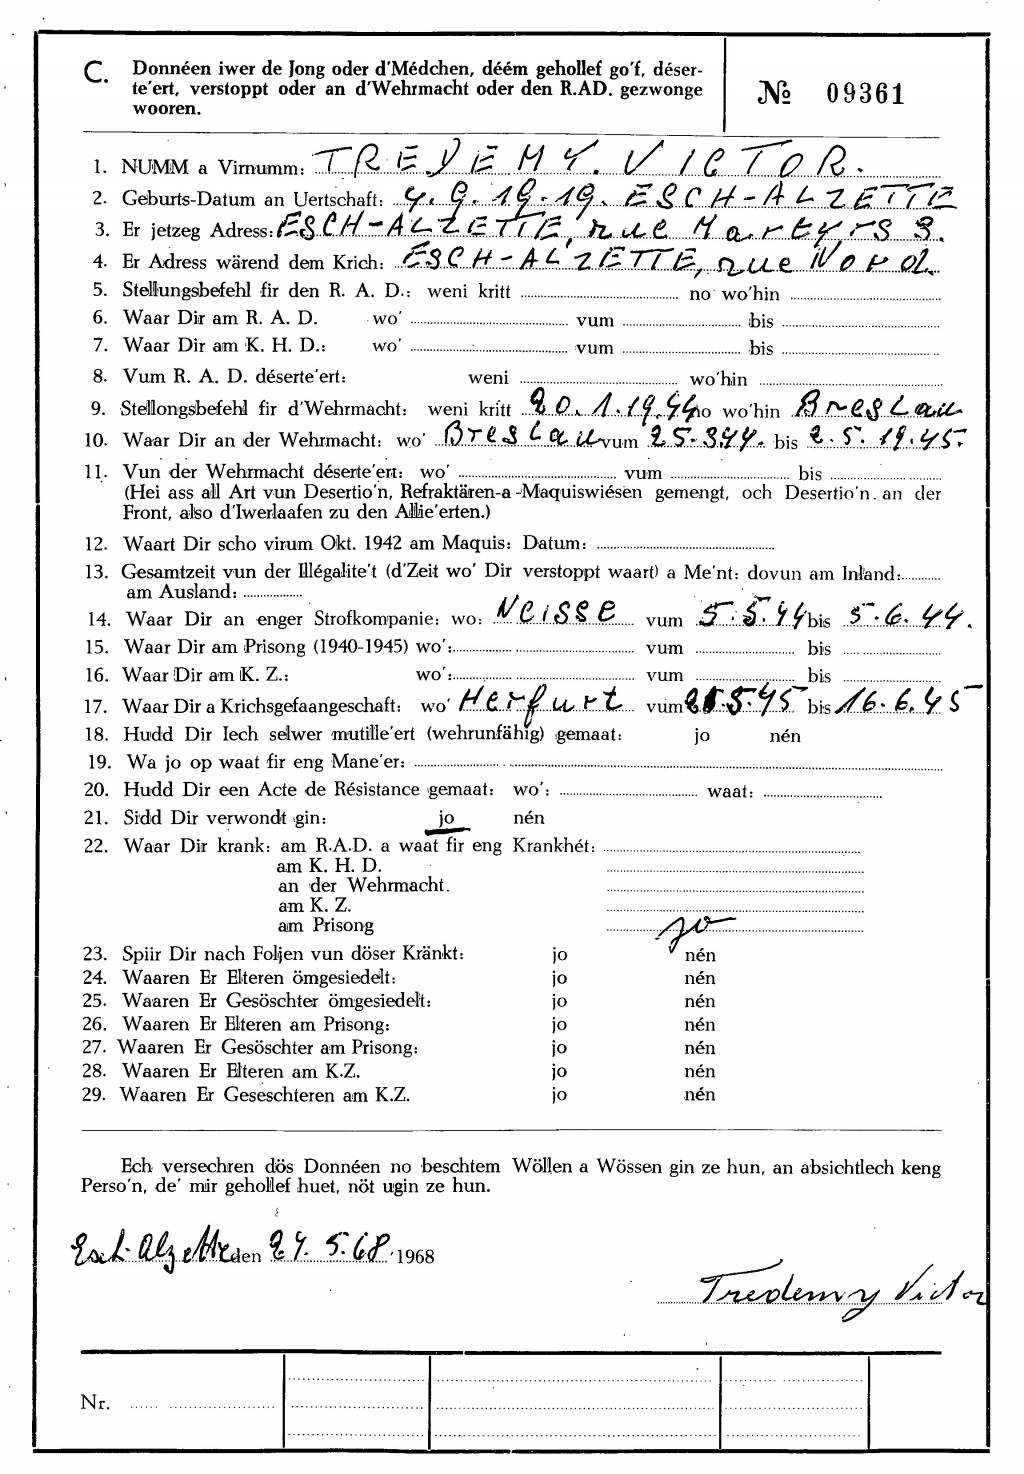 C. Donnéen iwer de Jong oder d'Médchen, déém gehollef go'f, déser-
te'ert, verstoppt oder an d'Wehrmacht oder den R.AD. gezwonge
wooren.
№ 09361
1. NUMM a Virnumm: TREDEMY. VICTOR.
2. Geburts-Datum an Uertschaft: 4. 9. 19-19. ESCH-ALZETTE
3. Er jetzeg Adress: ESCH-ALZETTE, rue Martyrs 3.
4. Er Adress wärend dem Krich: ESCH-ALZETTE, rue Nord.
5. Stellungsbefehl fir den R. A. D.: weni kritt no wo'hin
6. Waar Dir am R. A. D. wo' vum bis
7. Waar Dir am K. H. D.: wo' vum bis
8. Vum R. A. D. déserte'ert: weni wo'hin
9. Stellongsbefehl fir d'Wehrmacht: weni kritt 20.1.19.44 no wo'hin Breslau
10. Waar Dir an der Wehrmacht: wo' Breslau vum 25.3.44. bis 2.5.19.45.
11. Vun der Wehrmacht déserte'ert: wo' vum bis
(Hei ass all Art vun Desertio'n, Refraktären-a-Maquiswiésen gemengt, och Desertio'n an der
Front, also d'Iwerlaafen zu den Allie'erten.)
12. Waart Dir scho virum Okt. 1942 am Maquis: Datum:
13. Gesamtzeit vun der Illégalite't (d'Zeit wo' Dir verstoppt waart) a Me'nt: dovun am Inland:
am Ausland:
14. Waar Dir an enger Strofkompanie: wo: Neisse vum 5.5.44 bis 5.6.44.
15. Waar Dir am Prisong (1940-1945) wo': vum bis
16. Waar Dir am K. Z.: wo': vum bis
17. Waar Dir a Krichsgefaangeschaft: wo' Herfurt vum 5.45 bis 16.6.45
18. Hudd Dir Iech selwer mutille'ert (wehrunfähig) gemaat: jo nén
19. Wa jo op waat fir eng Mane'er:
20. Hudd Dir een Acte de Résistance gemaat: wo': waat:
21. Sidd Dir verwondt gin: jo nén
22. Waar Dir krank: am R.A.D. a waat fir eng Krankhét:
am K. H. D.
an der Wehrmacht.
am K. Z.
am Prisong jo
23. Spiir Dir nach Foljen vun döser Kränkt: jo nén
24. Waaren Er Elteren ömgesiedelt: jo nén
25. Waaren Er Gesöschter ömgesiedelt: jo nén
26. Waaren Er Elteren am Prisong: jo nén
27. Waaren Er Gesöschter am Prisong: jo nén
28. Waaren Er Elteren am K.Z. jo nén
29. Waaren Er Geseschteren am K.Z. jo nén
Ech versechren dös Donnéen no beschtem Wöllen a Wössen gin ze hun, an absichtlech keng
Perso'n, de' mir gehollef huet, nöt ugin ze hun.
Esch-Alzette den 24.5.68 1968
Tredemy Victor
Nr.